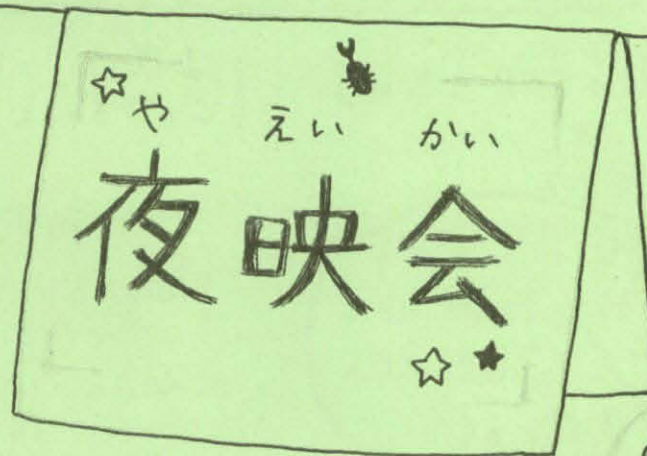 や えい かい
夜映会